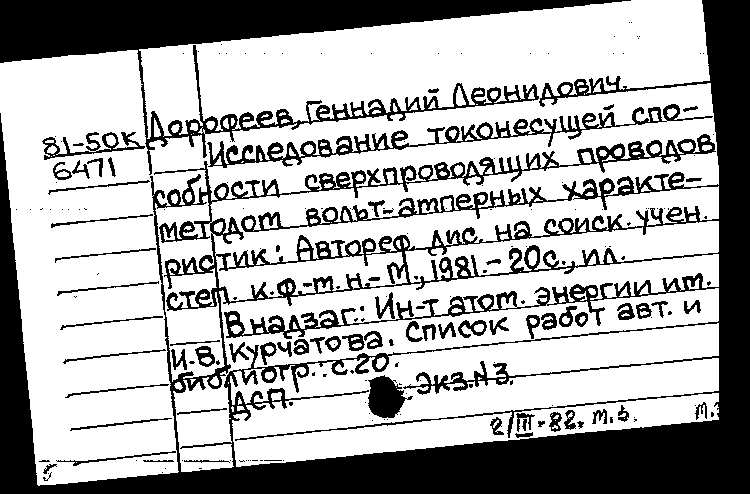 81-50к Дорофеев, Геннадий Леонидович.
6471 Исследование токонесущей спо-
собности сверхпроводящих проводов
методом вольт-амперных характе-
ристик: Автореф. дис. на соиск. учен.
степ. к.ф.-т.н.-М., 1981.-20с., ил.
В надзаг.: Ин-т атом. энергии им.
И.В. Курчатова. Список работ авт. и
библиогр.: с.20.
ДСП. Экз.N3.
2/III-82. м.